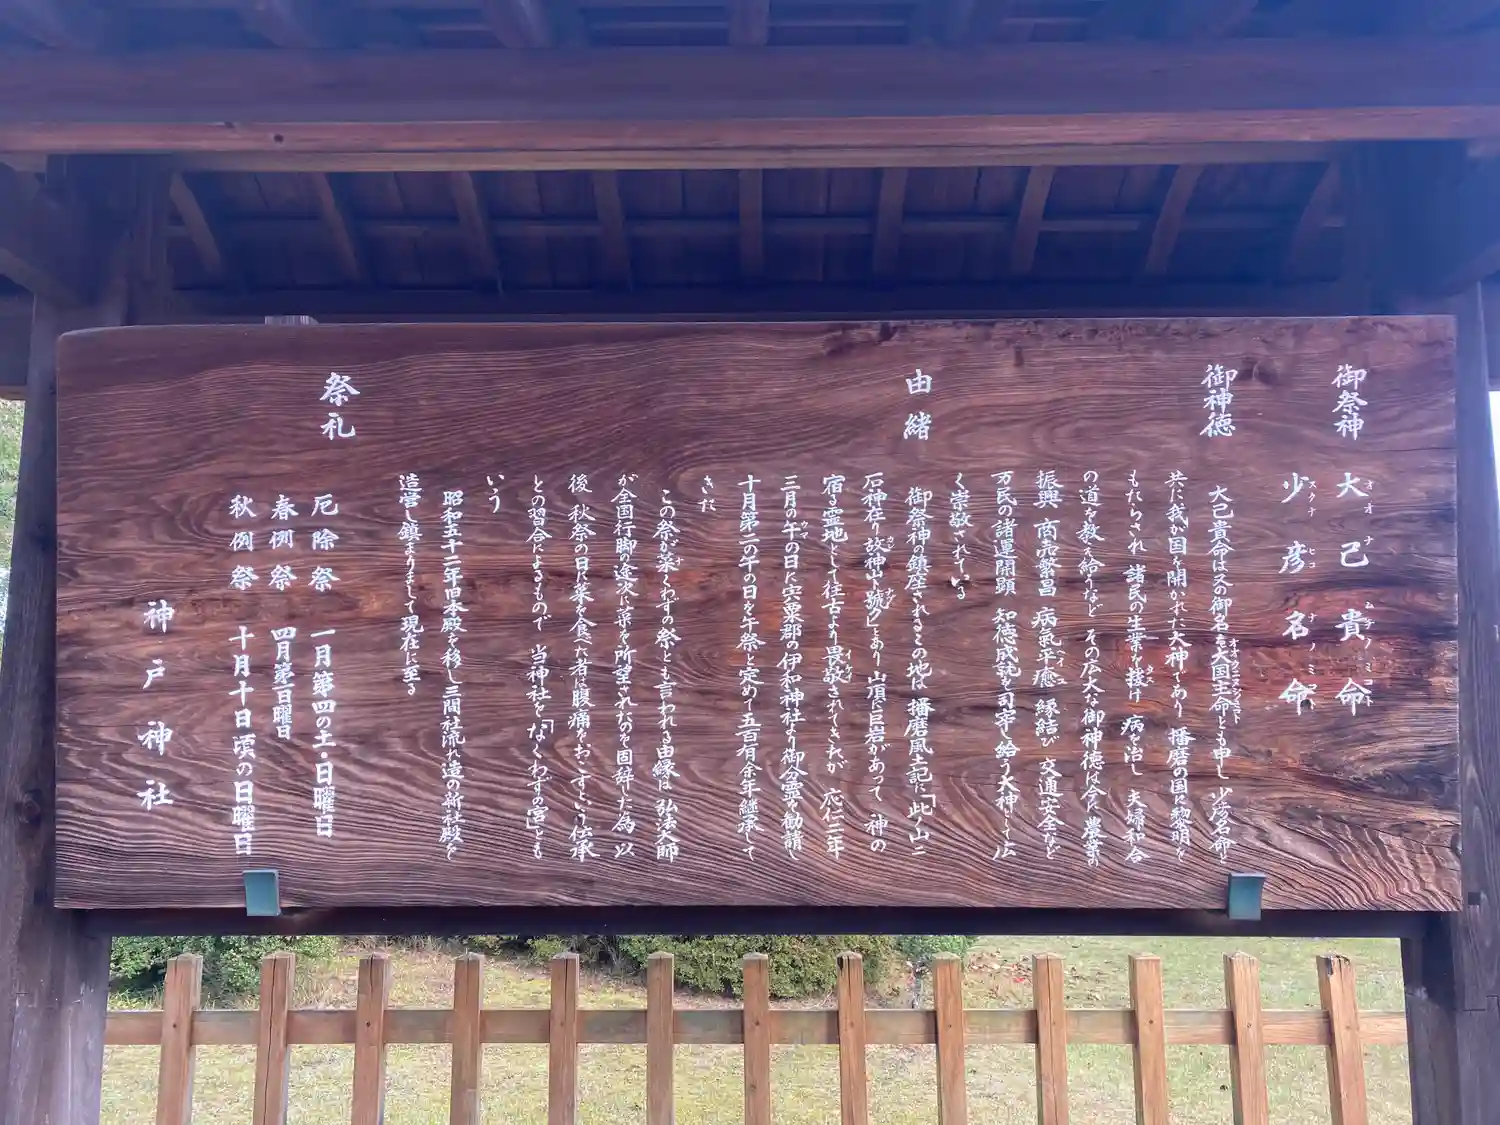 御祭神 大己貴命
オオ ナ ムチ ノ ミコト
少彦名命
スクナ ヒコ ナ ノ ミコト
御神徳
大己貴命は又の御名を大国主命とも申し 少彦名命と
オオクニヌシノミコト
共に我が国を開かれた大神であり 播磨の国に黎明を
もたらされ 諸民の生業を扶け 病を治し 夫婦和合
タス
の道を教え給うなど その広大な御神徳は今に 農業の
振興 商売繁昌 病気平癒 縁結び 交通安全など
ヘイユ
万民の諸運開顕 知徳成就を司宰し給う大神として広
く崇敬されている
由緒
御祭神の鎮座されるこの地は 播磨風土記に「此ノ山ニ
石神在り故神山ト號ク」とあり 山頂に巨岩があって 神の
宿る霊地として往古より畏敬されてきたが 応仁二年
イケイ
三月の午の日に宍粟郡の伊和神社より御分霊を勧請し
ウマ
十月第二の午の日を午祭と定めて五百有余年継承して
きた
この祭が菜くわずの祭とも言われる由縁は 弘法大師
が全国行脚の途次に菜を所望されたのを固辞した為 以
後 秋祭の日に菜を食べた者は腹痛をおこすという伝承
との習合によるもので 当神社を「なくわずの宮」とも
いう
昭和五十二年旧本殿を移し三間社流れ造の新社殿を
造営し鎮まりまして現在に至る
祭礼
厄除祭 一月第四の土・日曜日
春例祭 四月第一日曜日
秋例祭 十月十日頃の日曜日
神戸神社